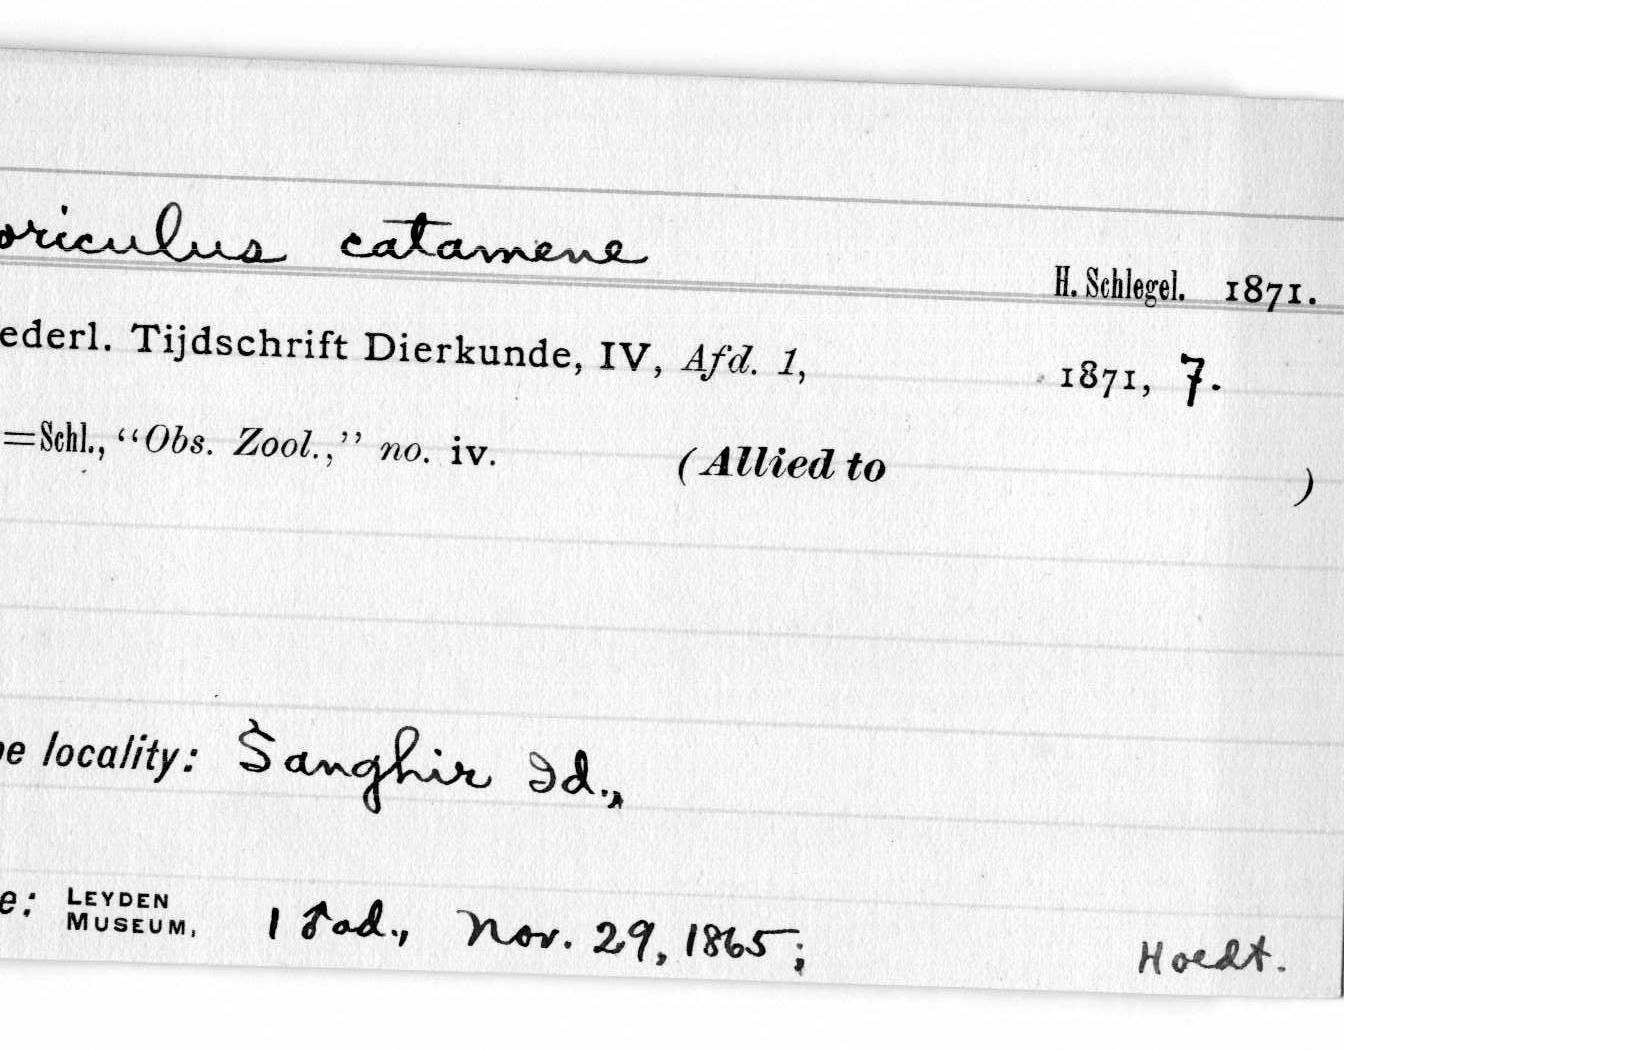 oriculus catamene
H. Schlegel. 1871.
ederl. Tijdschrift Dierkunde, IV, Afd. 1, 1871, 7.
=Schl., “Obs. Zool.,” no. iv. (Allied to )
e locality: Sanghir Id.,
e: LEYDEN MUSEUM, 1 ♂ ad., Nov. 29, 1865; Hoedt.